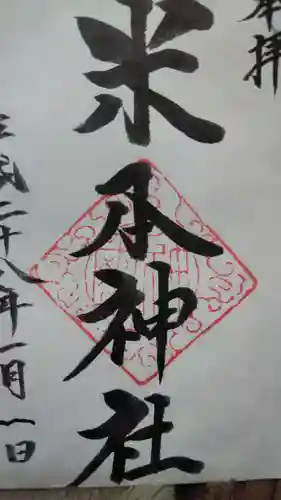 奉拝
米本神社
平成二十八年一月一日